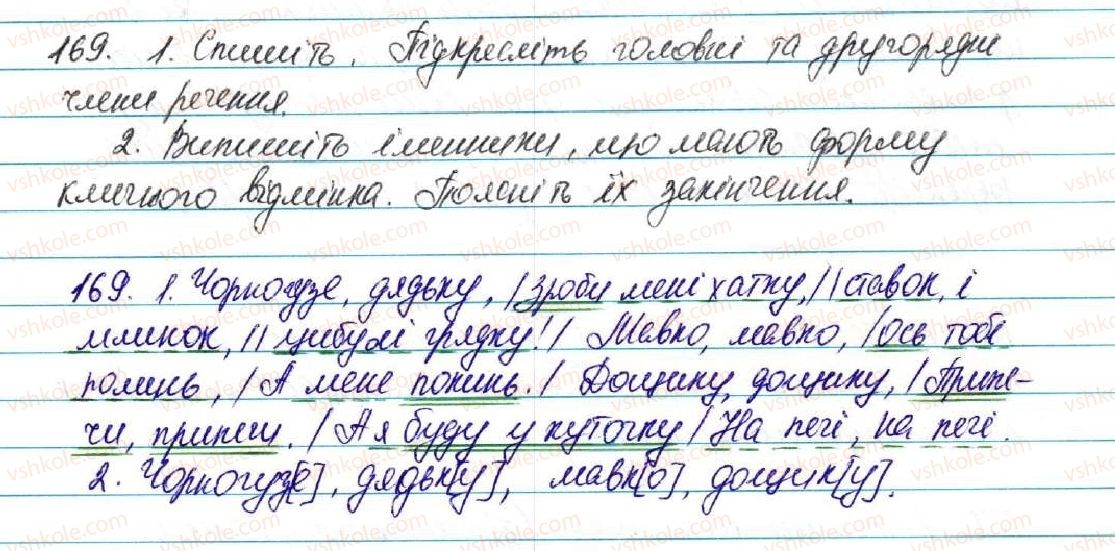 169. 1. Спишіть. Підкресліть головні та другорядні
члени речення.
2. Випишіть іменники, що мають форму
кличного відмінка. Поясніть їх закінчення.
169. 1. Чорногузе, дядьку, / зроби мені хатку, // ставок, і
млинок, // цибулі грядку! / Мавко, мавко, / ось тобі
полинь, / А мене покинь. / Дощику, дощику, / Припе-
чи, припечи. / А я буду у куточку / На печі, на печі.
2. Чорногуз[е], дядьк[у], мавк[о], дощик[у].